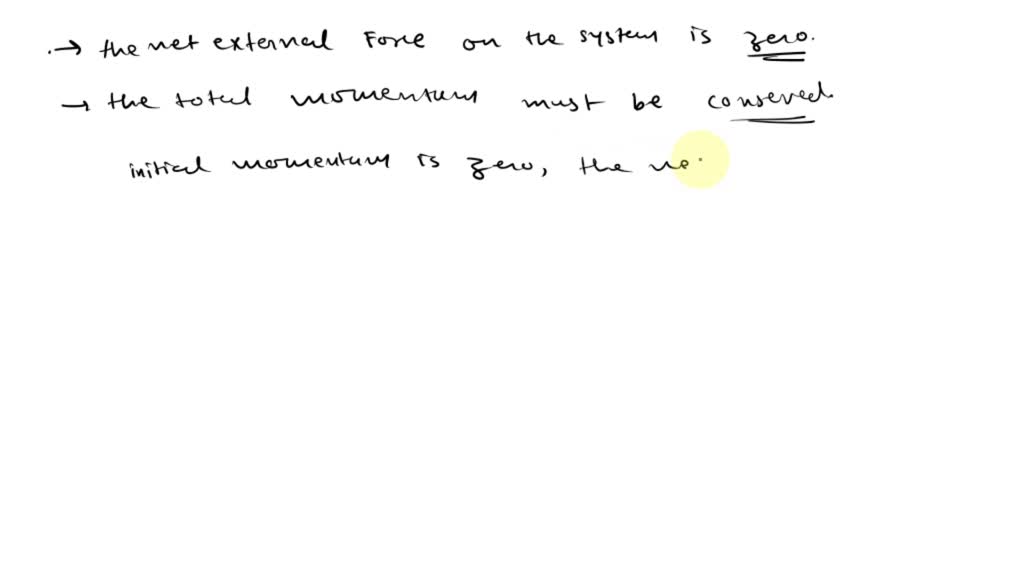 .→ the net external Force on the system is zero.
→ the total momentum must be conserved.
initial momentum is zero, the